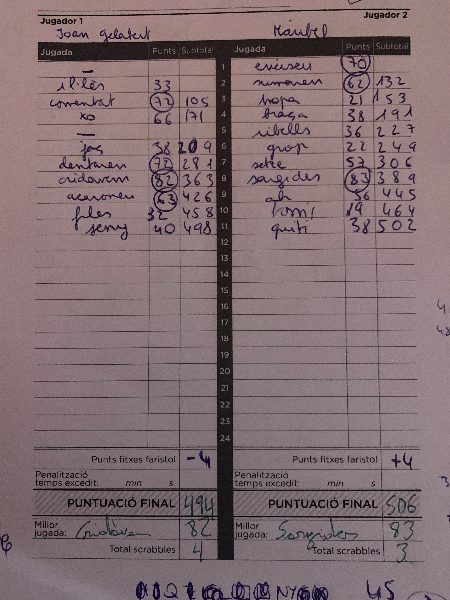 Jugador 1 Jugador 2
Joan gelabert Maribel
Jugada Punts Subtotal Jugada Punts Subtotal
— 1 70
il·làs 33 2 sumaven 62 132
comentat 72 105 3 hopa 21 153
xo 66 171 4 braga 38 191
— 5 ribells 36 227
jaç 38 209 6 grop 22 249
dentaren 72 281 7 setze 57 306
cridàvem 82 363 8 sorgides 83 389
63 426 9 oh 56 445
files 32 458 10 19 464
seny 40 498 11 quiti 38 502
12
13
14
15
16
17
18
19
20
21
22
23
24
Punts fitxes faristol -4 Punts fitxes faristol +4
Penalització temps excedit: min s Penalització temps excedit: min s
PUNTUACIÓ FINAL 494 PUNTUACIÓ FINAL 506
Millor jugada: Cridàvem 82 Millor jugada: Sorgides 83
Total scrabbles 4 Total scrabbles 3
45